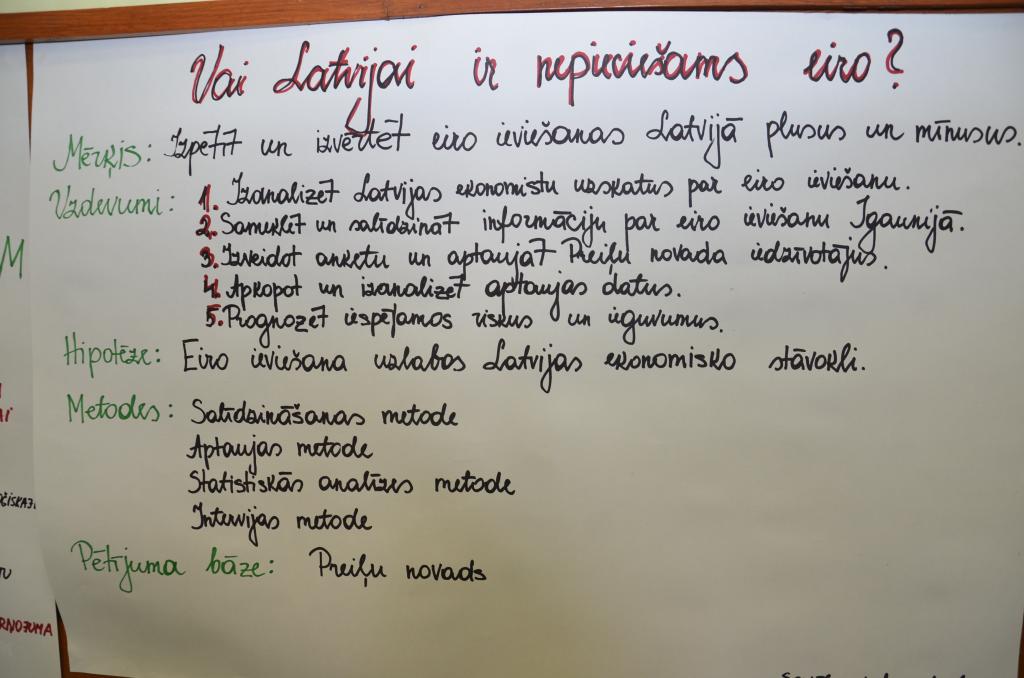 Vai Latvijai ir nepieciešams eiro?
Mērķis: Izpētīt un izvērtēt eiro ieviešanas Latvijā plusus un mīnusus.
Uzdevumi: 1. Izanalizēt Latvijas ekonomistu uzskatus par eiro ieviešanu.
2. Sameklēt un salīdzināt informāciju par eiro ieviešanu Igaunijā.
3. Izveidot anketu un aptaujāt Preiļu novada iedzīvotājus.
4. Apkopot un izanalizēt aptaujas datus.
5. Prognozēt iespējamos riskus un ieguvumus.
Hipotēze: Eiro ieviešana uzlabos Latvijas ekonomisko stāvokli.
Metodes: Salīdzināšanas metode
Aptaujas metode
Statistiskās analīzes metode
Intervijas metode
Pētījuma bāze: Preiļu novads
M